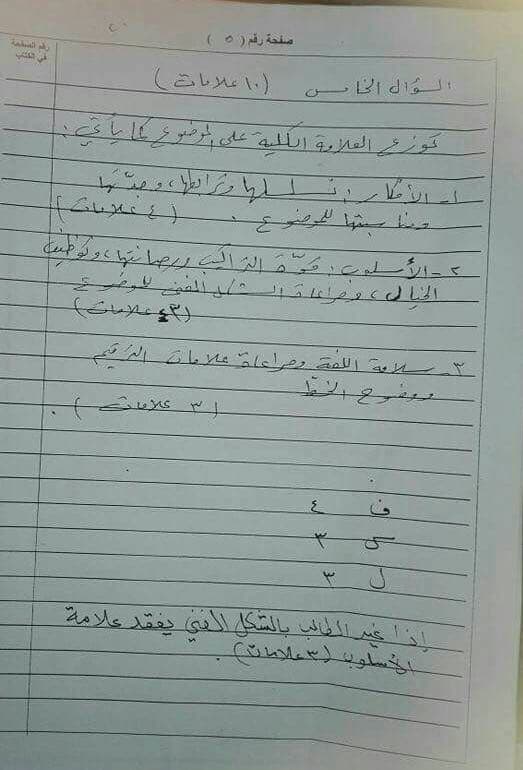 صفحة رقم ( ٥ )
رقم الصفحة
في الكتاب
السؤال الخامس (١٠ علامات)
توزع العلامة الكلية على الموضوع كما يأتي:
١- الأفكار: تسلسلها وترابطها، وجدّتها
ومناسبتها للموضوع. (٤ علامات)
٢- الأسلوب: قوّة التراكيب ورصانتها، وتوظيف
الخيال، ومراعاة الشكل الفني للموضوع
(٣ علامات)
٣- سلامة اللغة ومراعاة علامات الترقيم
ووضوح الخطّ
(٣ علامات).
ف ٤
س ٣
ل ٣
إذا غير الطالب بالشكل الفني يفقد علامة
الأسلوب (٣ علامات).